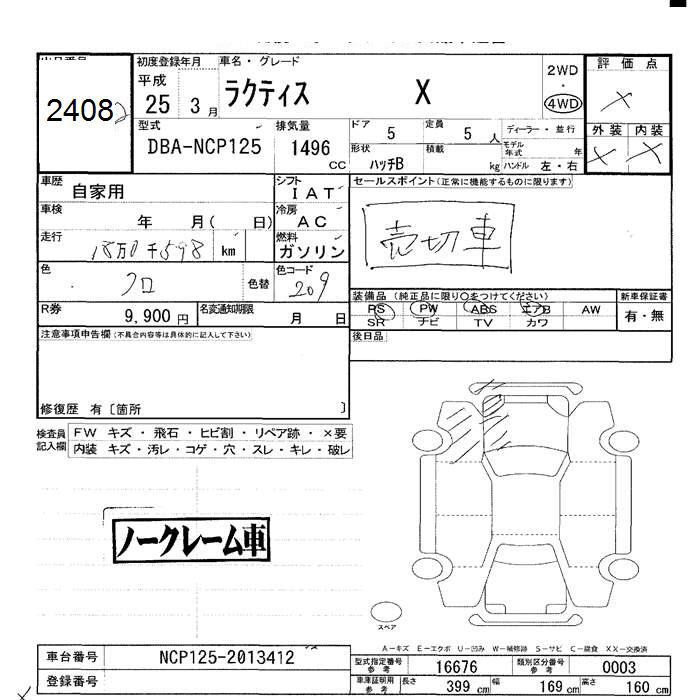 2408
初度登録年月
平成
25 3 月
車名・グレード
ラクティス X
2WD
・
4WD
評価点
外装 内装
型式
DBA-NCP125
排気量
1496
CC
ドア
5
定員
5 人
ディーラー・並行
形状
ハッチB
積載
kg
モデル年式
年
ハンドル 左・右
車歴
自家用
シフト
IAT
セールスポイント(正常に機能するものに限ります)
車検
年 月( 日)
冷房
AC
走行
km
燃料
ガソリン
売切車
色
クロ
色替
色コード
209
R券
9,900 円
名変通知期限
月 日
装備品 (純正品に限り○をつけてください)
PS PW ABS エアB AW
SR ナビ TV カワ
新車保証書
有・無
注意事項申告欄(不具合内容等は具体的に記入して下さい)
後日品
修復歴 有〔箇所 〕
検査員
記入欄
FW キズ・飛石・ヒビ割・リペア跡・×要
内装 キズ・汚レ・コゲ・穴・スレ・キレ・破レ
ノークレーム車
スペア
A−キズ E−エクボ U−凹み W−補修跡 S−サビ C−腐食 XX−交換済
車台番号
NCP125-2013412
登録番号
型式指定番号
参考
16676
類別区分番号
参考
0003
車庫証明用
参考
長さ
399 cm
幅
169 cm
高さ
160 cm